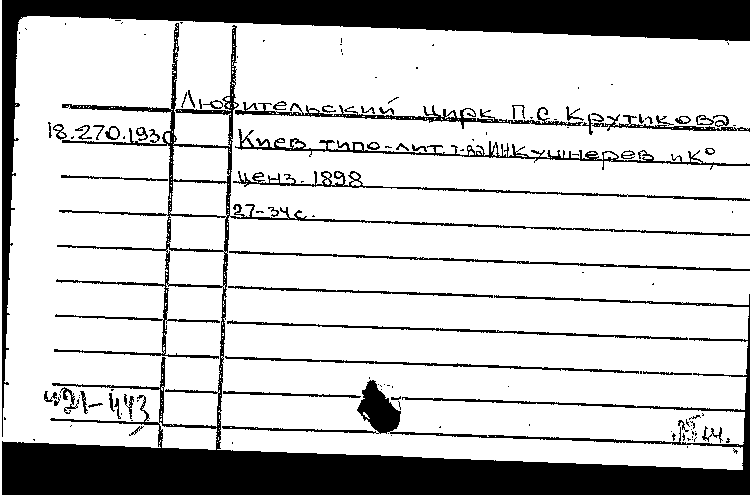 Любительский цирк П.С. Крутикова.
18.270.1930
Киев, типо-лит. т-ва И.Н.Кушнерев и К°,
ценз. 1898
27-34 с.
ч21-443